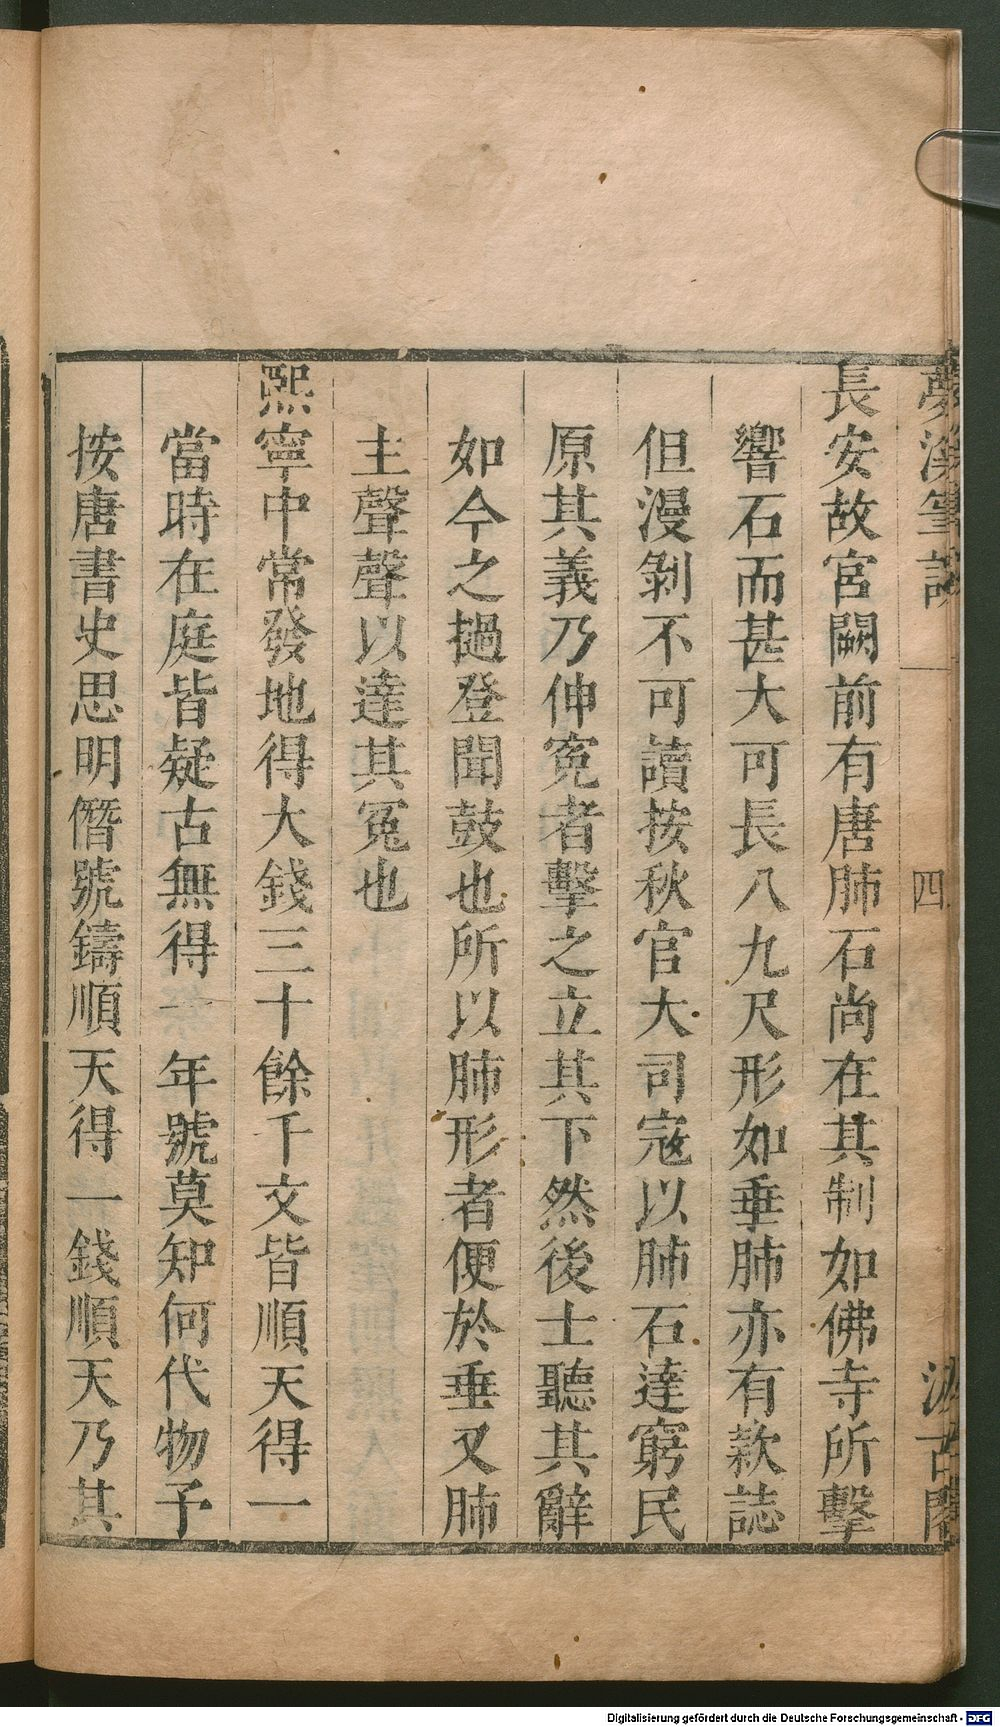 夢溪筆談 四 汲古閣
長安故宮闕前有唐肺石尚在其制如佛寺所擊
響石而甚大可長八九尺形如垂肺亦有款誌
但漫剝不可讀按秋官大司寇以肺石達窮民
原其義乃伸冤者擊之立其下然後士聽其辭
如今之撾登聞鼓也所以肺形者便於垂又肺
主聲聲以達其冤也
熙寧中常發地得大錢三十餘千文皆順天得一
當時在庭皆疑古無得 年號莫知何代物予
按唐書史思明僭號鑄順天得一錢順天乃其
Digitalisierung gefördert durch die Deutsche Forschungsgemeinschaft - DFG